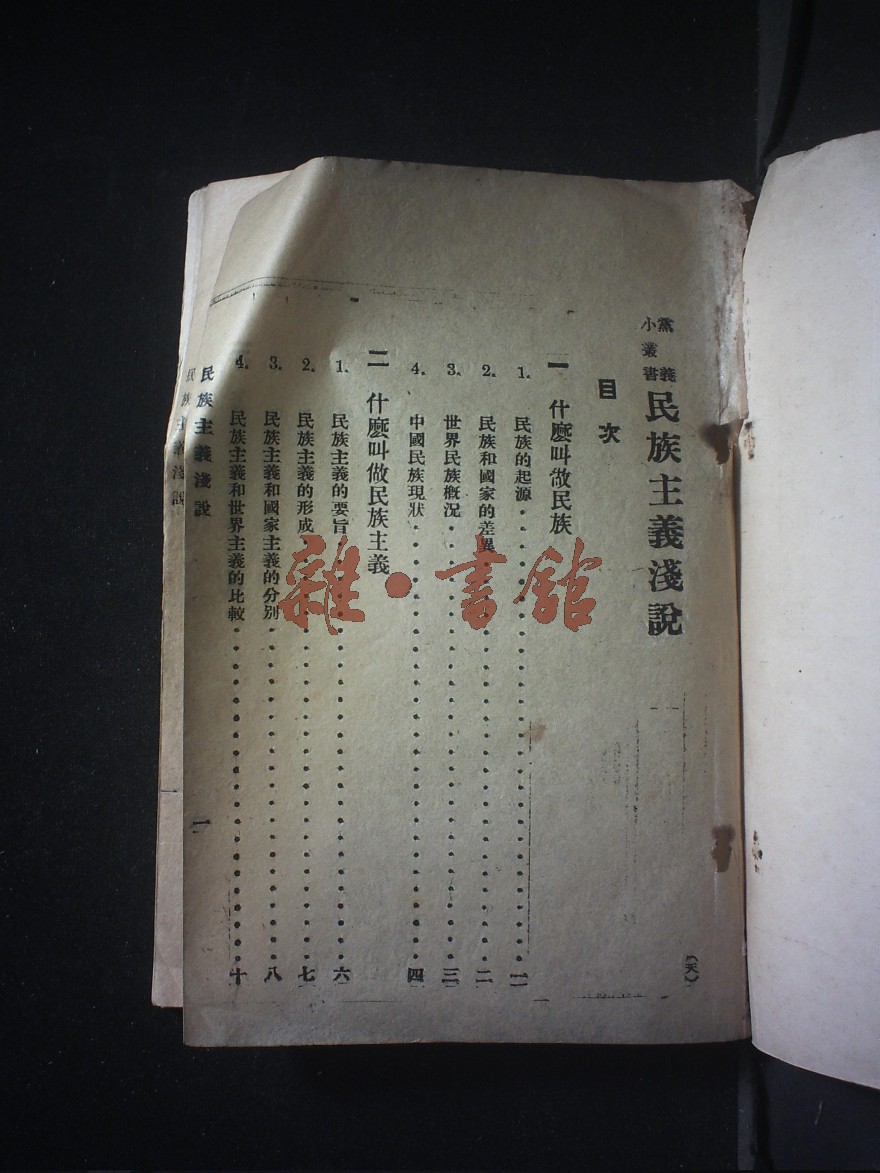 黨義小叢書
民族主義淺說
(天)
目次
一 什麼叫做民族
1. 民族的起源 一
2. 民族和國家的差異 二
3. 世界民族概況 三
4. 中國民族現狀 四
二 什麼叫做民族主義
1. 民族主義的要旨 六
2. 民族主義的形成 七
3. 民族主義和國家主義的分別 八
4. 民族主義和世界主義的比較 十
民族主義淺說 一
民族主義淺說
雜·書館